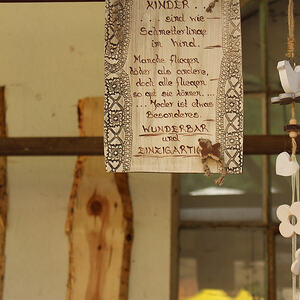 KINDER . .
. . . sind wie
Schmetterlinge
im Wind.
Manche fliegen
höher als andere,
doch alle fliegen
so gut sie können. . .
. . . Jeder ist etwas
Besonderes.
WUNDERBAR
und
EINZIGARTIG